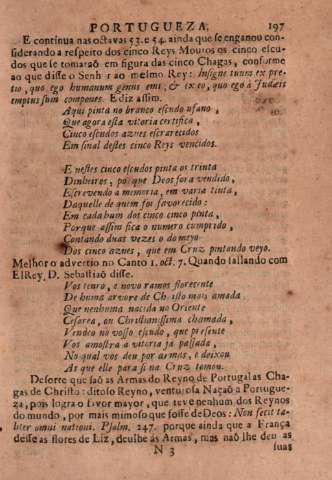 PORTUGUEZA. 197
E continua nas octavas 53. e 54. ainda que se enganou con-
siderando a respeito dos cinco Reys Mouros os cinco escu-
dos que se tomaraõ em figura das cinco Chagas, conforme
ao que disse o Senhor ao mesmo Rey: Insigne tuum ex pre-
tio, quo ego humanum genus emi, & ex eo, quo ego à Judæis
emptus sum compones. E diz assim.
Aqui pinta no branco escudo ufano,
Que agora esta vitoria certifica,
Cinco escudos azues esclarecidos
Em sinal destes cinco Reys vencidos.
E nestes cinco escudos pinta os trinta
Dinheiros, porque Deos fora vendido,
Escrevendo a memoria, em varia tinta,
Daquelle de quem foi favorecido:
Em cada hum dos cinco cinco pinta,
Porque assim fica o numero cumprido,
Contando duas vezes o do meyo
Dos cinco azues, que em Cruz pintando veyo.
Melhor o advertio no Canto 1. oct. 7. Quando fallando com
ElRey D. Sebastiaõ disse.
Vos tenro, e novo ramo florecente
De huma arvore de Christo mais amada
Que nenhuma nacida no Oriente
Cesarea, ou Christianissima chamada,
Vendeo no vosso escudo, que presente
Vos amostra a vitoria ja passada,
No qual vos deu por armas, e deixou
As que elle para si na Cruz tomou.
Desorte que saõ as Armas do Reyno de Portugal as Cha-
gas de Christo: ditoso Reyno, venturosa Naçaõ a Portugue-
za, pois logra o favor mayor, que teve nenhum dos Reynos
do mundo, por mais mimoso que fosse de Deos: Non fecit ta-
liter omni nationi. Psalm. 247. porque ainda que a França
desse as flores de Liz, deulhe as Armas, mas naõ lhe deu as
N 3 suas